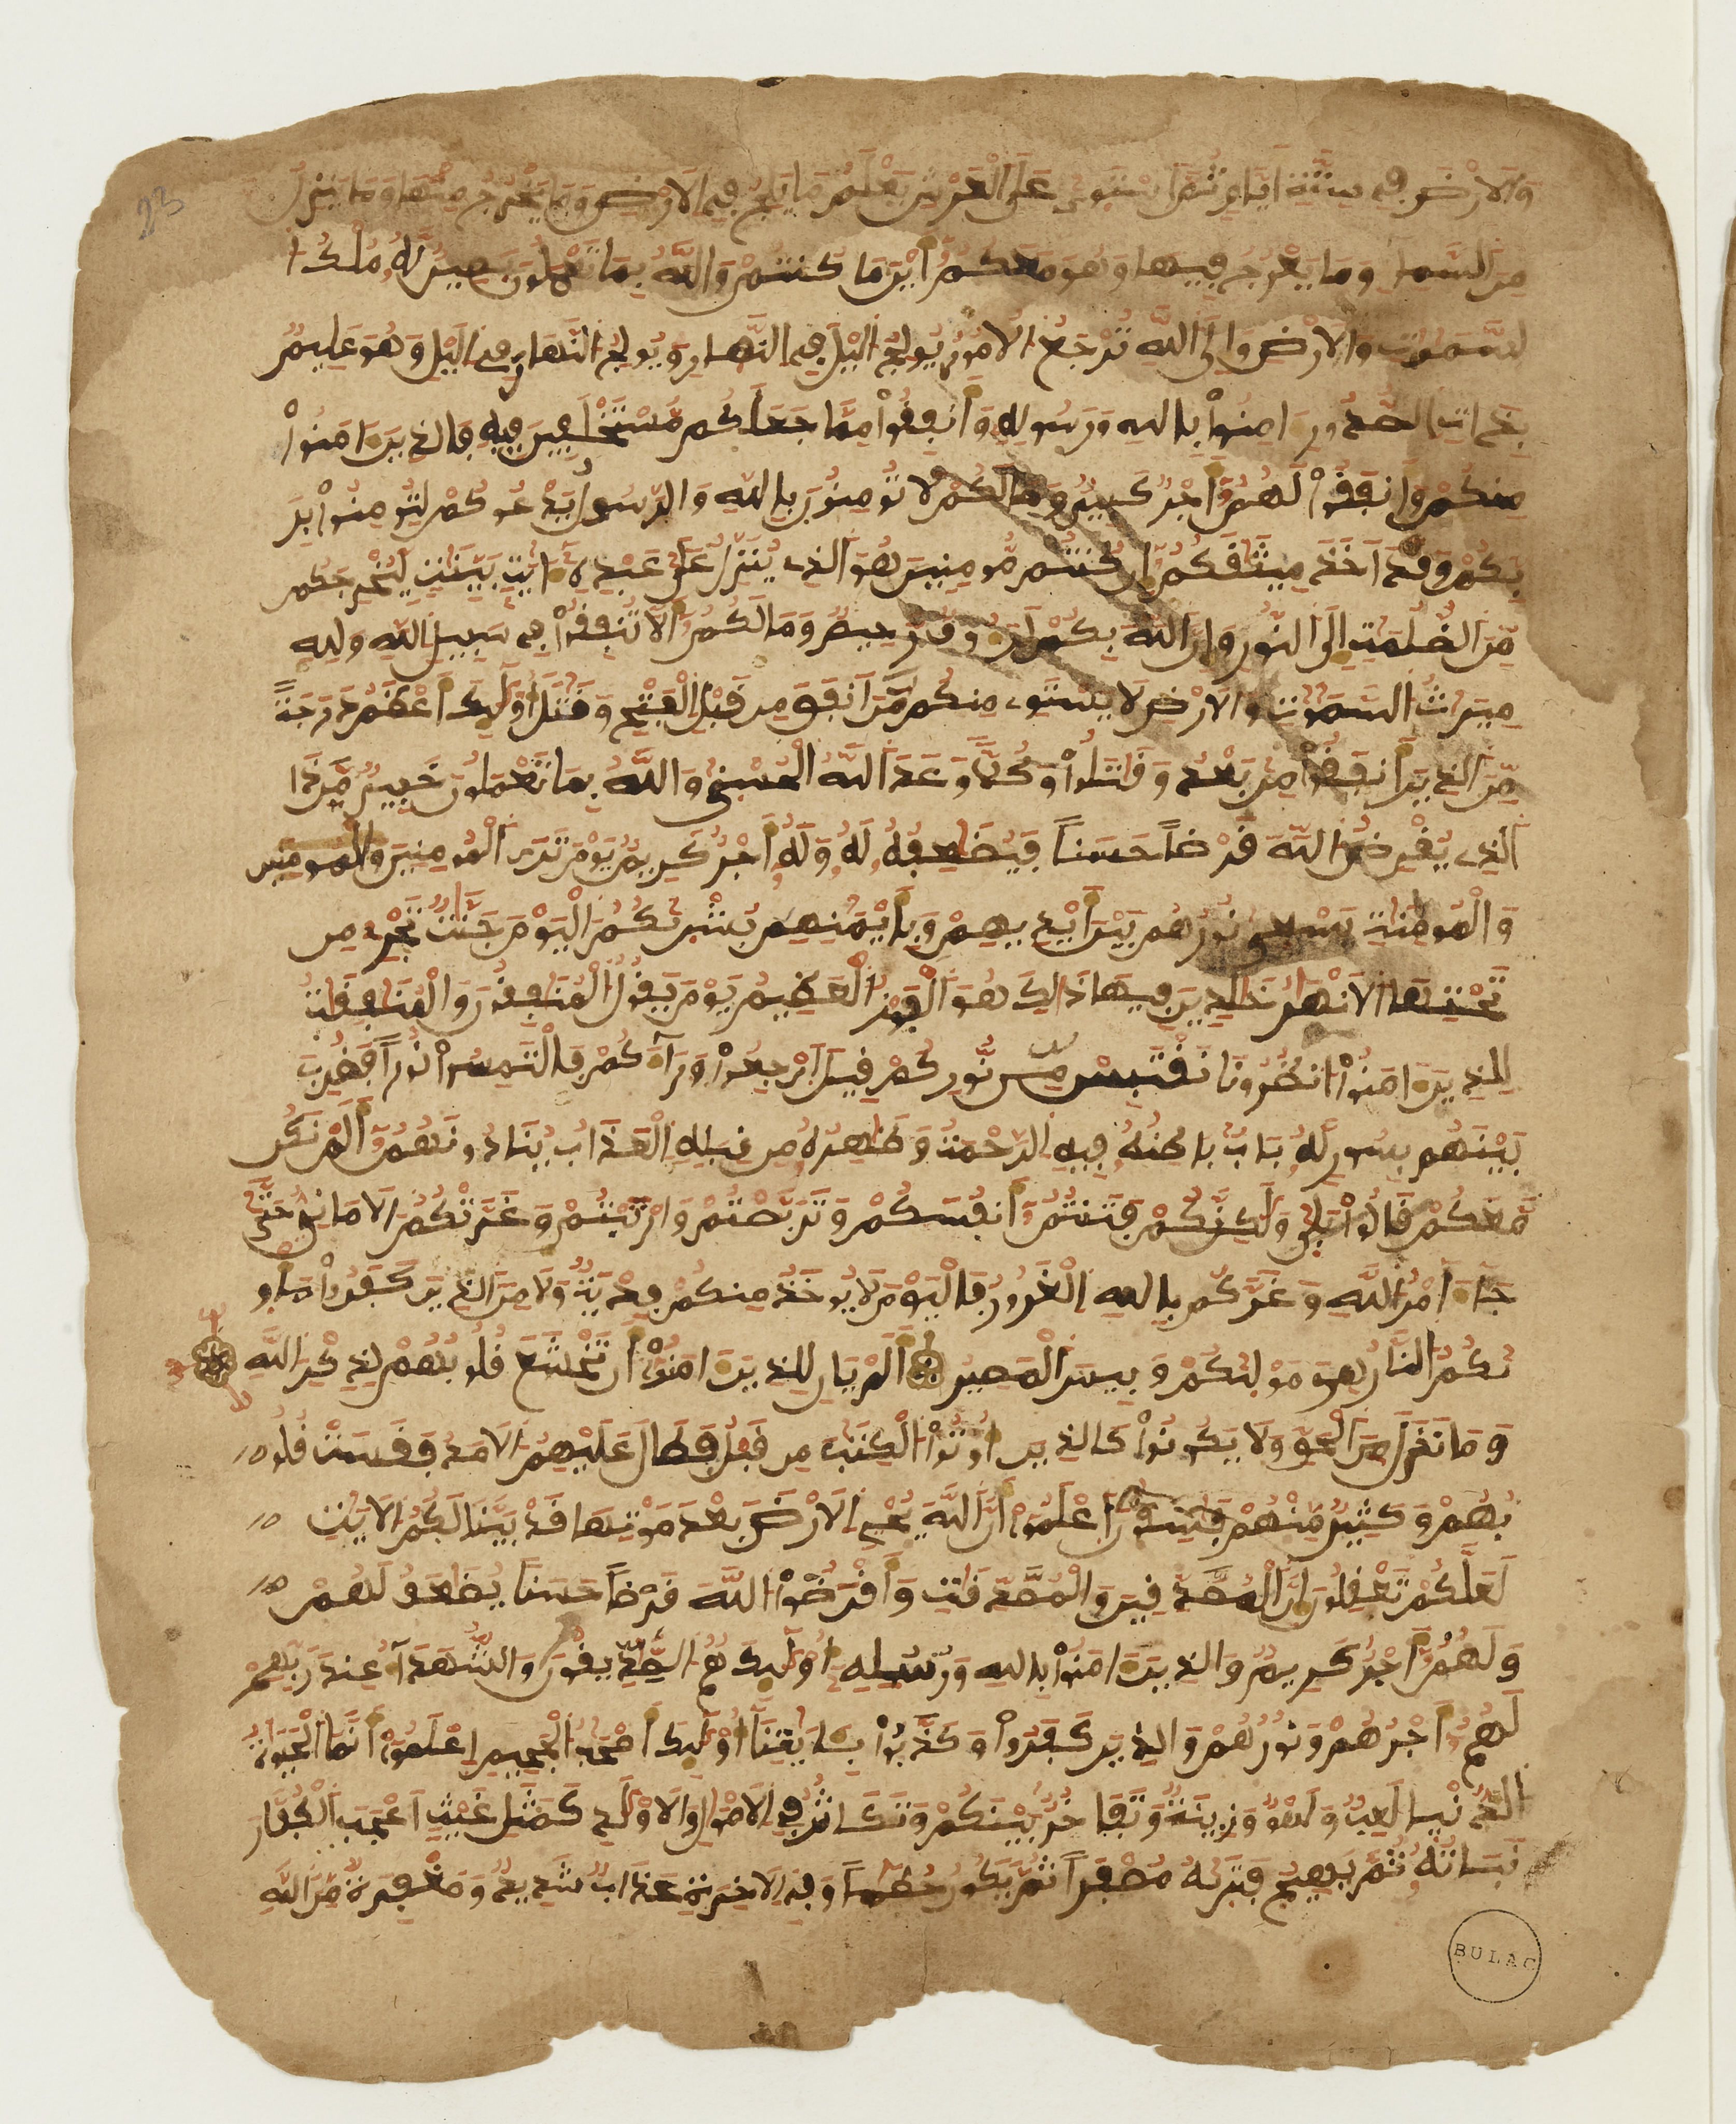 23
وَالَارْضَ فِي سِتَّةِ أَيَّامٍ ثُمَّ اَسْتَوىٰ عَلَى اَلْعَرْشِ يَعْلَمُ مَا يَلِجُ فِي اِلَارْضِ وَمَا يَخْرُجُ مِنْهَا وَمَا يَنزِلُ
مِنَ اَلسَّمَاءِ وَمَا يَعْرُجُ فِيهَا وَهُوَ مَعَكُمُ أَيْنَ مَا كُنتُمْ وَاللَّهُ بِمَا تَعْمَلُونَ بَصِيرٌ لَّهُ مُلْكُ ا
لسَّمَٰوَٰتِ وَالَارْضِ وَإِلَى اَللَّهِ تُرْجَعُ الُامُورُ يُولِجُ اليْلَ فِي اِلنَّهَارِ وَيُولِجُ النَّهَارَ فِي اِليْلِ وَهُوَ عَلِيمٌ
بِذَاتِ اِلصُّدُورِ ءَامِنُواْ بِاللَّهِ وَرَسُولِهِ وَأَنفِقُواْ مِمَّا جَعَلَكُم مُّسْتَخْلَفِينَ فِيهِ فَالذِينَ ءَامَنُواْ
مِنكُمْ وَأَنفَقُواْ لَهُمُ أَجْرٌ كَبِيرٌ وَمَا لَكُمْ لَا تُومِنُونَ بِاللَّهِ وَالرَّسُولُ يَدْعُوكُمْ لِتُومِنُواْ بِرَ
بِّكُمْ وَقَدَ اَخَذَ مِيثَٰقَكُمُ إِن كُنتُم مُّومِنِينَ هُوَ اَلذِي يُنَزِّلُ عَلَىٰ عَبْدِهِ ءَايَٰتٍ بَيِّنَٰتٍ لِّيُخْرِجَكُم
مِّنَ اَلظُّلُمَٰتِ إِلَى اَلنُّورِ وَإِنَّ اَللَّهَ بِكُمْ لَرَءُوفٌ رَّحِيمٌ وَمَا لَكُمُ أَلَّا تُنفِقُواْ فِي سَبِيلِ اِللَّهِ وَلِلهِ
مِيرَٰثُ اُلسَّمَٰوَٰتِ وَالَارْضِ لَا يَسْتَوِي مِنكُم مَّنَ اَنفَقَ مِن قَبْلِ اِلْفَتْحِ وَقَٰتَلَ أُوْلَٰئِكَ أَعْظَمُ دَرَجَةً
مِّنَ اَلذِينَ أَنفَقُواْ مِن بَعْدُ وَقَٰتَلُواْ وَكُلّاً وَعَدَ اَللَّهُ اُلْحُسْنَىٰ وَاللَّهُ بِمَا تَعْمَلُونَ خَبِيرٌ مَّن ذَا
اَلذِي يُقْرِضُ اُللَّهَ قَرْضاً حَسَناً فَيُضَٰعِفُهُ لَهُ وَلَهُ أَجْرٌ كَرِيمٌ يَوْمَ تَرَى اَلْمُومِنِينَ وَالْمُومِنِينَ
وَالْمُومِنَٰتِ يَسْعَىٰ نُورُهُم بَيْنَ أَيْدِيهِمْ وَبِأَيْمَٰنِهِم بُشْرَىٰكُمُ اُلْيَوْمَ جَنَّٰتٌ تَجْرِي مِن
تَحْتِهَا اَلَانْهَٰرُ خَٰلِدِينَ فِيهَا ذَٰلِكَ هُوَ اَلْفَوْزُ اُلْعَظِيمُ يَوْمَ يَقُولُ اُلْمُنَٰفِقُونَ وَالْمُنَٰفِقَٰتُ
لِلذِينَ ءَامَنُواْ اُنظُرُونَا نَقْتَبِسْ مِن نُّورِكُمْ قِيلَ اَرْجِعُواْ وَرَاءَكُمْ فَالْتَمِسُواْ نُوراً فَضُرِبَ
بَيْنَهُم بِسُورٍ لَّهُ بَابٌ بَاطِنُهُ فِيهِ اِلرَّحْمَةُ وَظَٰهِرُهُ مِن قِبَلِهِ اِلْعَذَابُ يُنَادُونَهُمُ أَلَمْ نَكُن
مَّعَكُمْ قَالُواْ بَلَىٰ وَلَٰكِنَّكُمْ فَتَنتُمُ أَنفُسَكُمْ وَتَرَبَّصْتُمْ وَارْتَبْتُمْ وَغَرَّتْكُمُ اُلَامَانِيُّ حَتَّىٰ
جَاءَ امْرُ اُللَّهِ وَغَرَّكُم بِاللَّهِ اِلْغَرُورُ فَالْيَوْمَ لَا يُوخَذُ مِنكُمْ فِدْيَةٌ وَلَا مِنَ اَلذِينَ كَفَرُواْ مَأْو
ىٰكُمُ اُلنَّارُ هِيَ مَوْلَىٰكُمْ وَبِيسَ اَلْمَصِيرُ أَلَمْ يَانِ لِلذِينَ ءَامَنُواْ أَن تَخْشَعَ قُلُوبُهُمْ لِذِكْرِ اِللَّهِ
وَمَا نَزَلَ مِنَ اَلْحَقِّ وَلَا يَكُونُواْ كَالذِينَ أُوتُواْ اُلْكِتَٰبَ مِن قَبْلُ فَطَالَ عَلَيْهِمُ اُلَامَدُ فَقَسَتْ قُلُو
بُهُمْ وَكَثِيرٌ مِّنْهُمْ فَٰسِقُونَ اَعْلَمُواْ أَنَّ اَللَّهَ يُحْيِ اِلَارْضَ بَعْدَ مَوْتِهَا قَدْ بَيَّنَّا لَكُمُ اُلَايَٰتِ
لَعَلَّكُمْ تَعْقِلُونَ إِنَّ اَلْمُصَّدِّقِينَ وَالْمُصَّدِّقَٰتِ وَأَقْرَضُواْ اُللَّهَ قَرْضاً حَسَناً يُضَٰعَفُ لَهُمْ
وَلَهُمُ أَجْرٌ كَرِيمٌ وَالذِينَ ءَامَنُواْ بِاللَّهِ وَرُسُلِهِ أُوْلَٰئِكَ هُمُ اُلصِّدِّيقُونَ وَالشُّهَدَاءُ عِندَ رَبِّهِمْ
لَهُمُ أَجْرُهُمْ وَنُورُهُمْ وَالذِينَ كَفَرُواْ وَكَذَّبُواْ بِـَٔايَٰتِنَا أُوْلَٰئِكَ أَصْحَٰبُ اُلْجَحِيمِ اِعْلَمُواْ أَنَّمَا اَلْحَيَوٰةُ
اُلدُّنْيَا لَعِبٌ وَلَهْوٌ وَزِينَةٌ وَتَفَاخُرٌ بَيْنَكُمْ وَتَكَاثُرٌ فِي اِلَامْوَٰلِ وَالَاوْلَٰدِ كَمَثَلِ غَيْثٍ اَعْجَبَ اَلْكُفَّارَ
نَبَاتُهُ ثُمَّ يَهِيجُ فَتَرَىٰهُ مُصْفَرّاً ثُمَّ يَكُونُ حُطَٰماً وَفِي اِلَاخِرَةِ عَذَابٌ شَدِيدٌ وَمَغْفِرَةٌ مِّنَ اَللَّهِ
BULAC